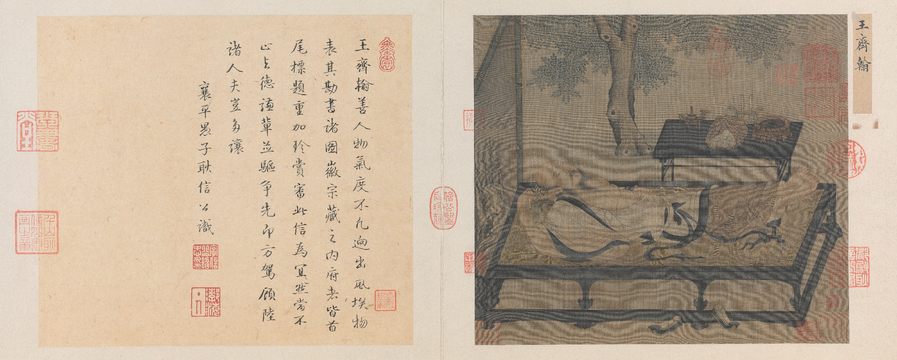 王齊翰
王齊翰善人物氣度不凡迥出風埃物
表其勘書諸圖徽宗藏之內府者皆首
尾標題重加珍賞審此信為然當不
止與德謙輩並驅爭先即方駕顧陸
諸人夫豈多讓
襄平子耿信公識